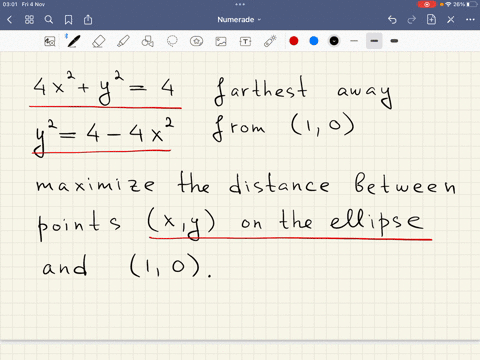 03:01 Fri 4 Nov
26%
Numerade
4x² + y² = 4 farthest away
y² = 4 – 4x² from (1,0)
maximize the distance between
points (x,y) on the ellipse
and (1,0).